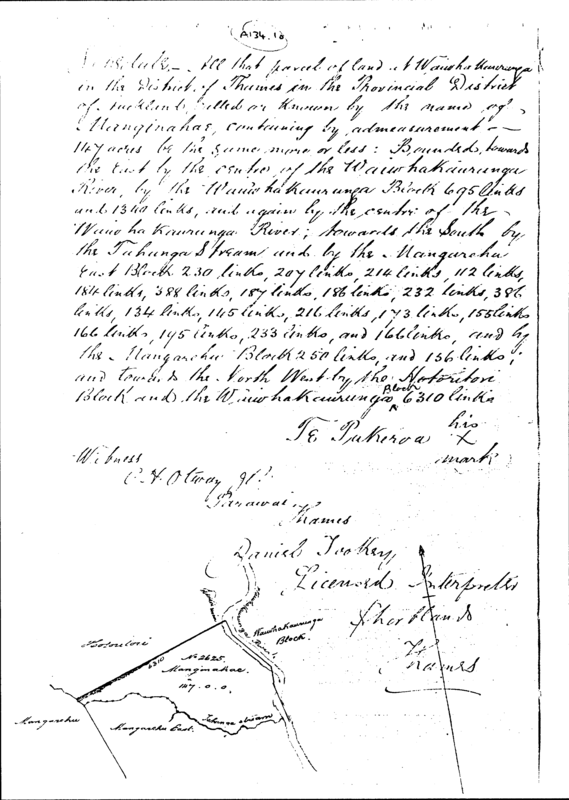 A134.10
Schedule – All that parcel of land at Waiwhakaurunga
in the District of Thames in the Provincial District
of Auckland called or known by the name of
Manginahae, containing by admeasurement
147 acres be the same more or less: Bounded towards
the East by the centre of the Waiwhakaurunga
River, by the Waiwhakaurunga Block 695 links
and 1340 links, and again by the centre of the
Waiwhakaurunga River; towards the South by
the Tahanga Stream and by the Mangarehu
East Block 230 links, 207 links, 214 links, 112 links,
184 links, 388 links, 187 links, 186 links, 232 links, 386
links, 134 links, 145 links, 216 links, 173 links, 155 links
166 links, 195 links, 233 links, and 166 links, and by
the Mangarehu Block 250 links, and 156 links;
and towards the North West by the Hotoritori
Block and the Waiwhakaurunga Block 6310 links
Te Pukeroa his
X
mark
Witness
Otway J.P.
Parawai
Thames
Daniel Tookey,
Licensed Interpreter
Shortland
Thames
Waiwhakaurunga
Block.
Hotoritori
6310
No 2625.
Manginahae.
147.0.0.
Tahanga Stream
Mangarehu
Mangarehu East.